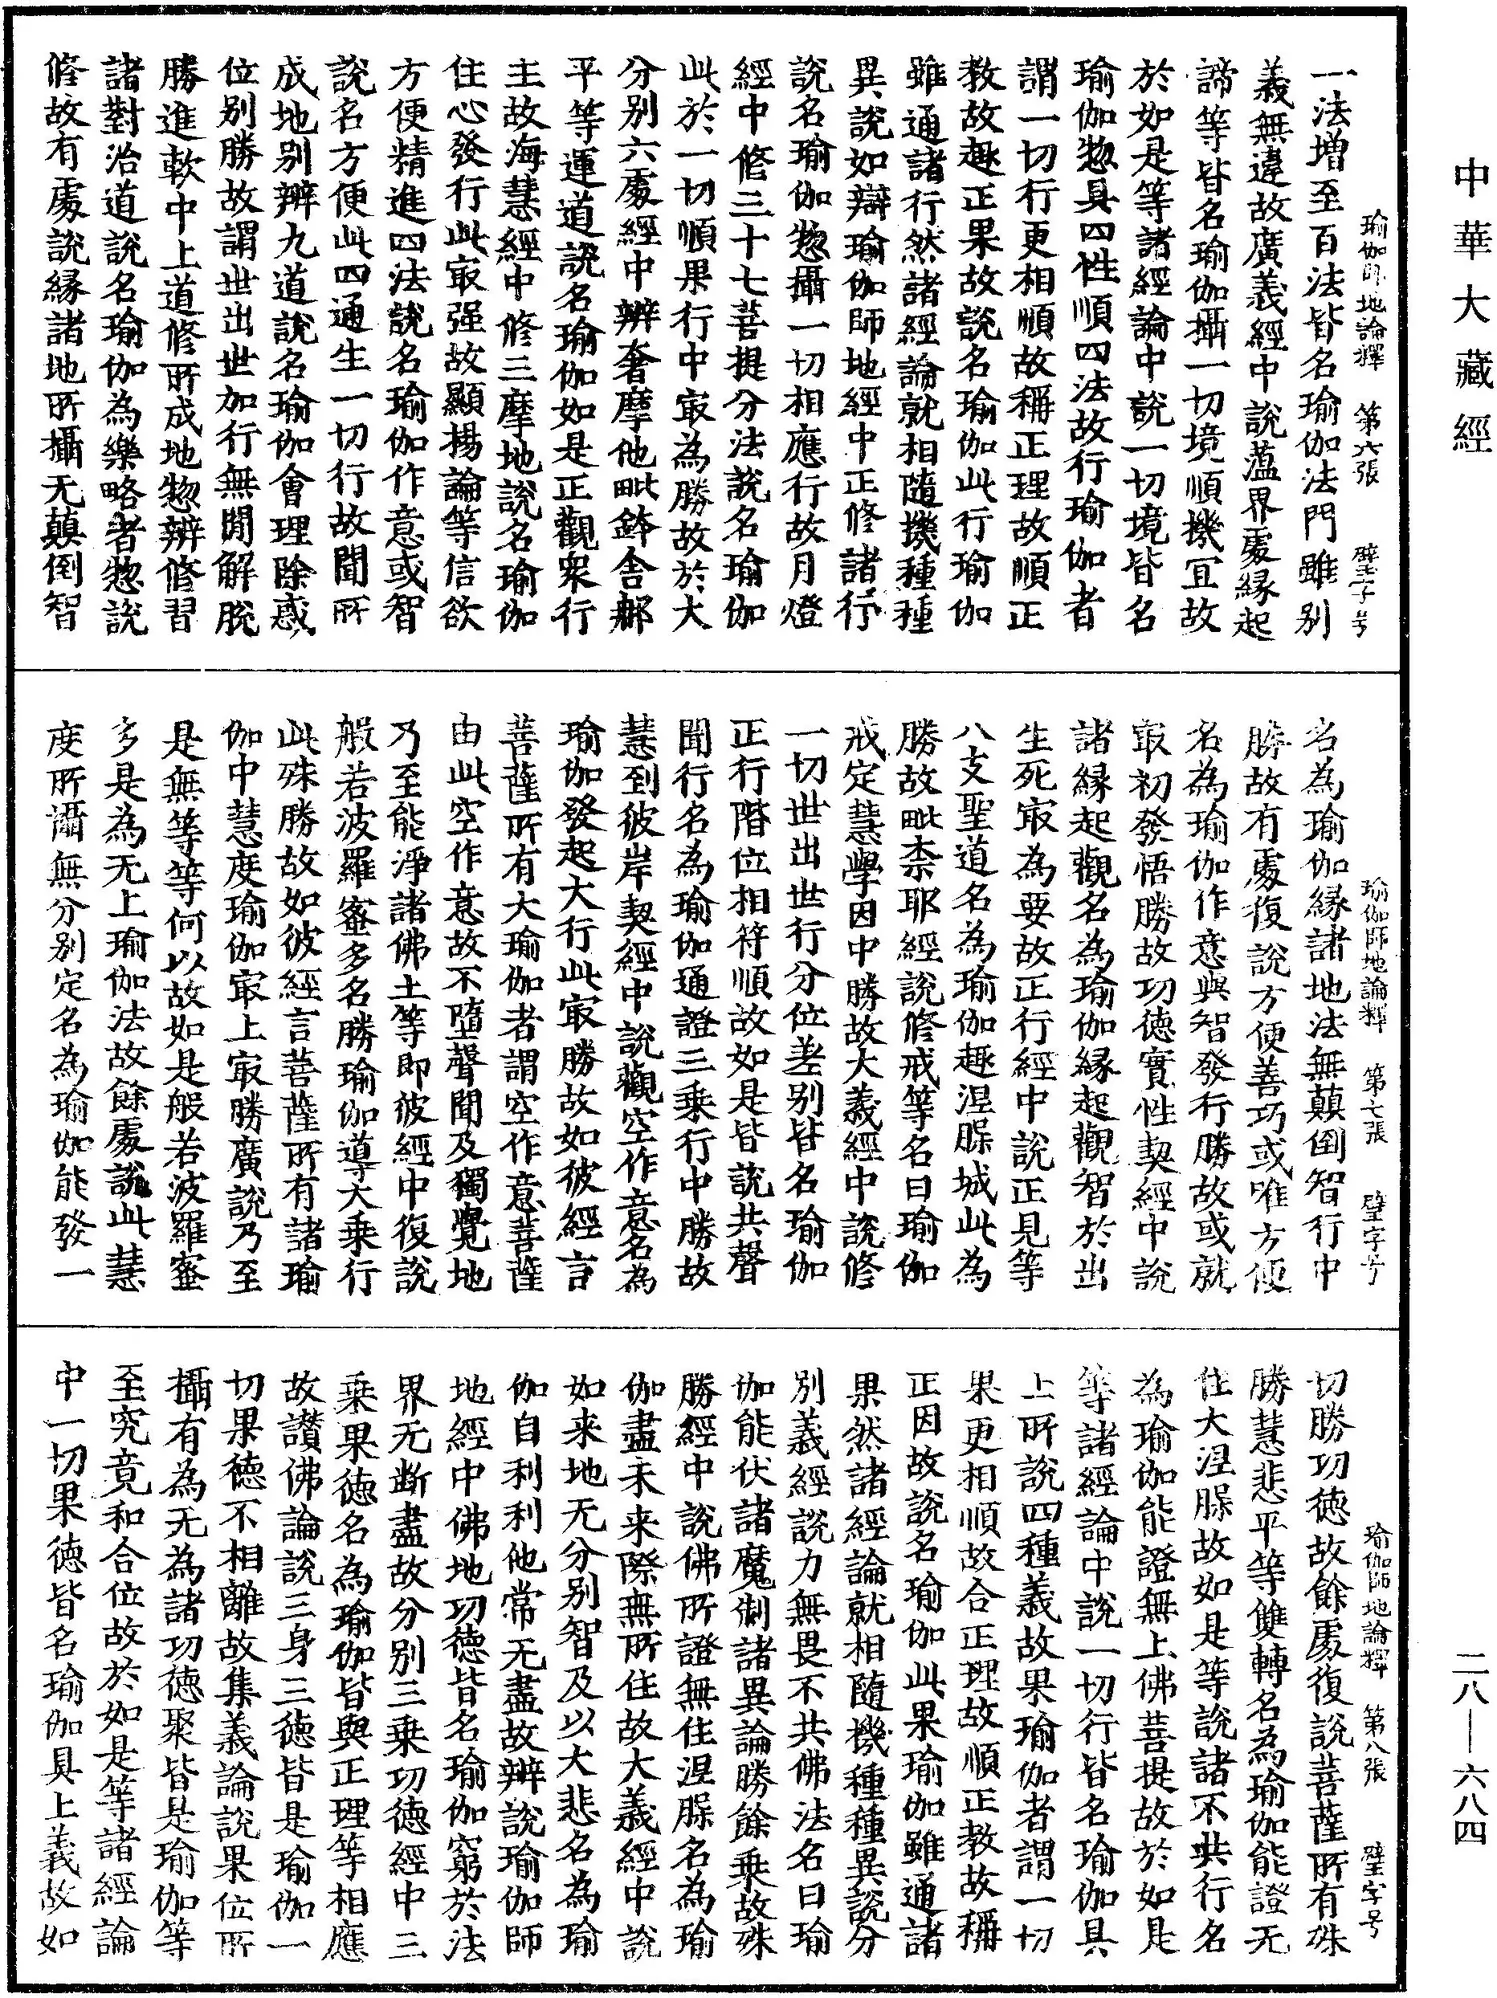 中華大藏經
瑜伽師地論釋　第六張　璧字号
一法增至百法皆名瑜伽法門雖別
義無違故廣義經中說蕰界處緣起
諦等皆名瑜伽攝一切境順機冝故
於如是等諸經論中說一切境皆名
瑜伽惣具四性順四法故行瑜伽者
謂一切行更相順故稱正理故順正
教故趣正果故說名瑜伽此行瑜伽
雖通諸行然諸經論就相隨機種種
異說如辯瑜伽師地經中正修諸行
說名瑜伽惣攝一切相應行故月燈
經中修三十七菩提分法說名瑜伽
此於一切順果行中冣為勝故於大
分別六處經中辨奢摩他毗鉢舍郍
平等運道說名瑜伽如是正觀衆行
主故海慧經中修三摩地說名瑜伽
住心發行此冣强故顯揚論等信欲
方便精進四法說名瑜伽作意或智
說名方便此四通生一切行故聞所
成地別辨九道說名瑜伽會理除惑
位別勝故謂世出世加行無間解脫
勝進軟中上道修所成地惣辨修習
諸對治道說名瑜伽為樂略者惣說
修故有處說緣諸地所攝无顛倒智
瑜伽師地論釋　第七張　璧字号
名為瑜伽緣諸地法無顛倒智行中
勝故有處復說方便善巧或唯方便
名為瑜伽作意與智發行勝故或就
冣初發悟勝故功德實性契經中說
諸緣起觀名為瑜伽緣起觀智於出
生死冣為要故正行經中說正見等
八支聖道名為瑜伽趣涅槃城此為
勝故毗柰耶經說修戒等名曰瑜伽
戒定慧學因中勝故大義經中說修
一切世出世行分位差別皆名瑜伽
正行階位相符順故如是皆說共聲
聞行名為瑜伽通證三乘行中勝故
慧到彼岸契經中說觀空作意名為
瑜伽發起大行此冣勝故如彼經言
菩薩所有大瑜伽者謂空作意菩薩
由此空作意故不墮聲聞及獨覺地
乃至能淨諸佛土等即彼經中復說
般若波羅蜜多名勝瑜伽導大乘行
此殊勝故如彼經言菩薩所有諸瑜
伽中慧度瑜伽冣上冣勝廣說乃至
是無等等何以故如是般若波羅蜜
多是為无上瑜伽法故餘處說此慧
度所攝無分別定名為瑜伽能發一
瑜伽師地論釋　第八張　璧字号
切勝功德故餘處復說菩薩所有殊
勝慧悲平等雙轉名為瑜伽能證无
住大涅槃故如是等說諸不共行名
為瑜伽能證無上佛菩提故於如是
等諸經論中說一切行皆名瑜伽具
上所說四種義故果瑜伽者謂一切
果更相順故合正理故順正教故稱
正因故說名瑜伽此果瑜伽雖通諸
果然諸經論就相隨機種種異說分
別義經說力無畏不共佛法名曰瑜
伽能伏諸魔制諸異論勝餘乘故殊
勝經中說佛所證無住涅槃名為瑜
伽盡未来際無所住故大義經中說
如来地无分別智及以大悲名為瑜
伽自利利他常无盡故辨說瑜伽師
地經中佛地功德皆名瑜伽窮於法
界无断盡故分別三乘功德經中三
乘果德名為瑜伽皆與正理等相應
故讚佛論說三身三德皆是瑜伽一
切果德不相離故集義論說果位所
攝有為无為諸功德聚皆是瑜伽等
至究竟和合位故於如是等諸經論
中一切果德皆名瑜伽具上義故如
二八—六八四